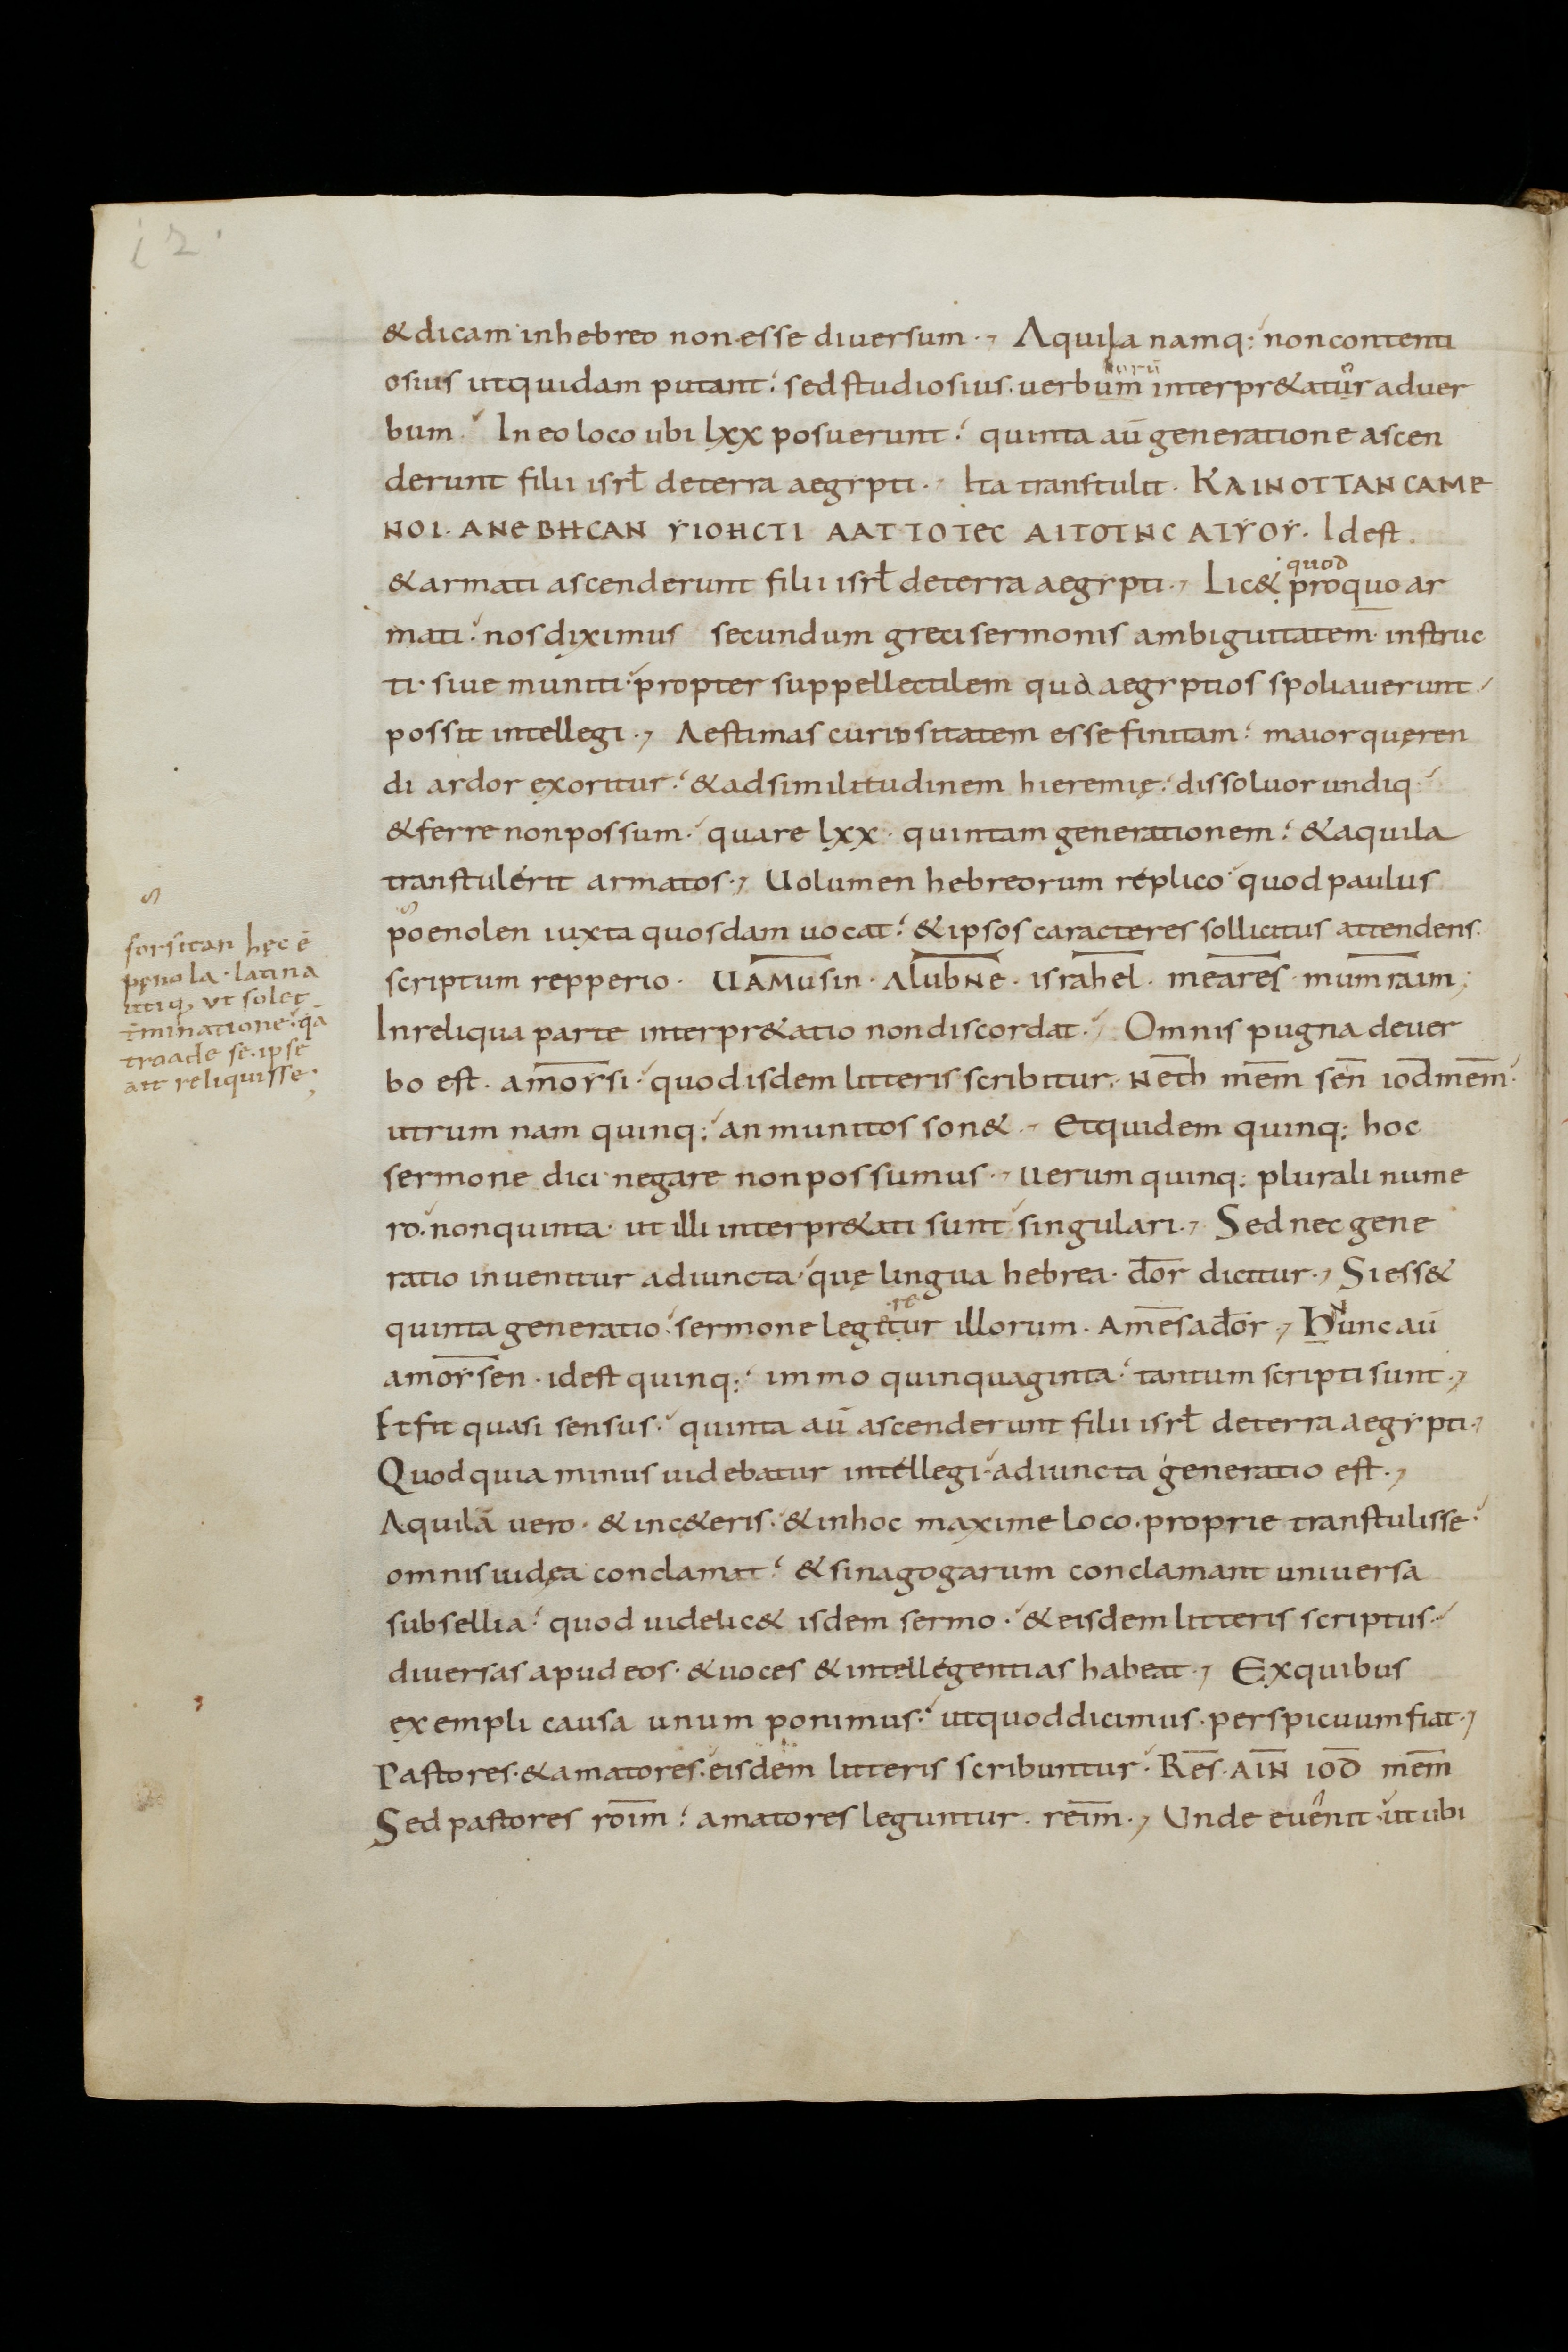 i2.
& dicam in hebreo non esse diuersum. Aquila namq: non contenti
osius ut quidam putant; sed studiosius. uerbum interpr&atur aduer
bum. In eo loco ubi lxx posuerunt; quinta aū generatione ascen
derunt filii isrł de terra aegypti. Ita transtulit. KAI NOTTAN CAME
NOI. ANEBHCAN ΥΙΟΗCΤΙ ΑΑΤ ΤΟ ΤΕC ΑΙΤΟΤΝC ΑΤΥΟΥ. Idest.
& armati ascenderunt filii isrł de terra aegypti. Lic& pro quo ar
quod
mati; nos diximus secundum greci sermonis ambiguitatem. instruc
ti. siue muniti. propter suppellectilem qua aegyptios spoliauerunt.
possit intellegi. Aestimas curiositatem esse finitam; maior quęren
di ardor ęxoritur; & ad similitudinem hieremię; dissoluor undiq.
& ferre non possum. quare lxx. quintam generationem; & aquila
transtulerit armatos. Uolumen hebreorum replico. quod paulus
poenolen iuxta quosdam uocat; & ipsos caracteres sollicitus attendens.
scriptum repperio. UAMusin. Alubne. israhel. meares. mumraim;
In reliqua parte interpr&atio non discordat. Omnis pugna de uer
bo est. amorsi. quod isdem litteris scribitur. neth mem sen iod mem.
utrum nam quinq: an munitos son&. Et quidem quinq: hoc
sermone dici negare non possumus. uerum quinq: plurali nume
ro. non quinta. ut illi interpr&ati sunt singulari. Sed nec gene
ratio inuenitur adiuncta. quę lingua hebrea. dor dicitur. Si ess&
quinta generatio. sermone legitur illorum. Amesador. Hunc aū
re
N
amorsen. idest quinq: immo quinquaginta. tantum scripti sunt.
Et fit quasi sensus. quinta aū ascenderunt filii isrł de terra aegypti.
Quod quia minus uidebatur intellegi. adiuncta generatio est.
Aquilā uero. & in c&eris. & in hoc maxime loco. proprie transtulisse.
omnis iudęa conclamat; & sinagogarum conclamant uniuersa
subsellia; quod uidelic& isdem sermo. & eisdem litteris scriptus.
diuersas apud eos. & uoces & intellegentias habeat. Ex quibus
exempli causa unum ponimus. ut quod dicimus. perspicuum fiat.
Pastores. & amatores. eisdem litteris scribuntur. Res. AIN IOD mem
Sed pastores roim; amatores leguntur. reim. Unde euenit. ut ubi
forsitan hęc ē
pęnola. latina
utiq, ut solet
t̄minatione. qā
troade se. ipse
ait reliquisse.